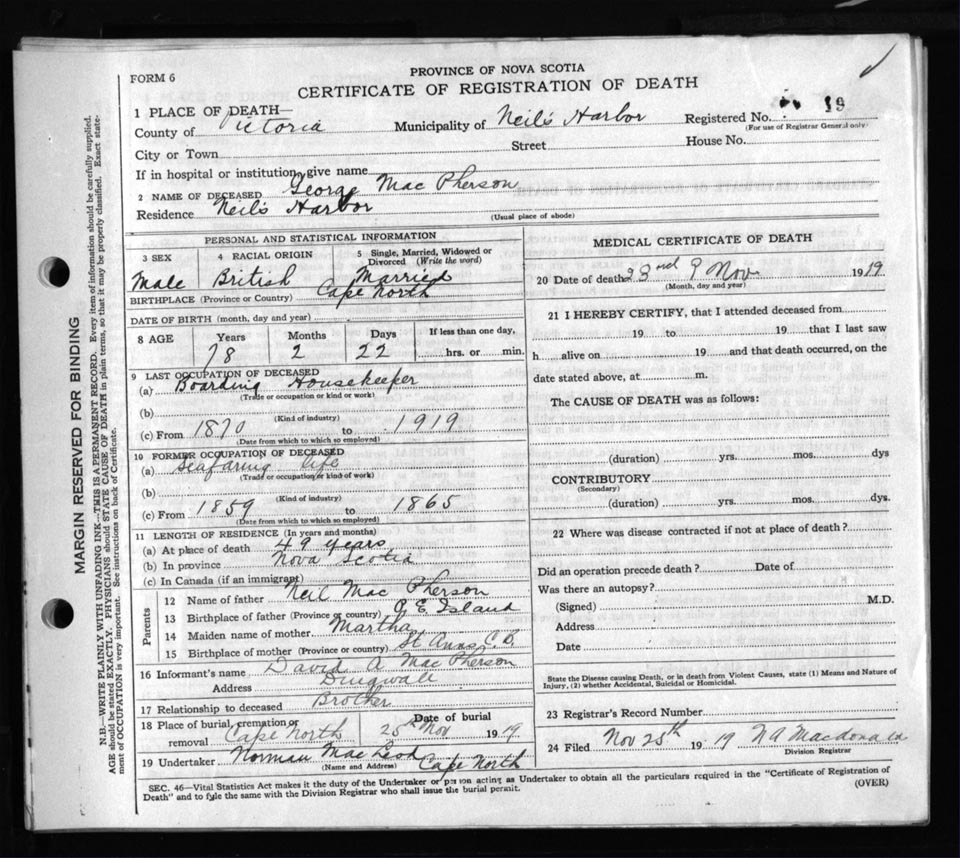 FORM 6
PROVINCE OF NOVA SCOTIA
CERTIFICATE OF REGISTRATION OF DEATH
1 PLACE OF DEATH—
County of Victoria Municipality of Neil's Harbor Registered No. 19
(For use of Registrar General only)
City or Town Street House No.
If in hospital or institution, give name
2 NAME OF DECEASED George Mac Pherson
Residence Neil's Harbor
(Usual place of abode)
PERSONAL AND STATISTICAL INFORMATION
3 SEX Male
4 RACIAL ORIGIN British
5 Single, Married, Widowed or Divorced (Write the word) Married
BIRTHPLACE (Province or Country) Cape North
DATE OF BIRTH (month, day and year)
8 AGE Years 78 Months 2 Days 22 If less than one day, hrs. or min.
9 LAST OCCUPATION OF DECEASED
(a) Boarding Housekeeper
(Trade or occupation or kind or work)
(b)
(Kind of industry)
(c) From 1870 to 1919
(Date from which to which so employed)
10 FORMER OCCUPATION OF DECEASED
(a) Seafaring life
(Trade or occupation or kind of work)
(b)
(Kind of industry)
(c) From 1859 to 1865
(Date from which to which so employed)
11 LENGTH OF RESIDENCE (In years and months)
(a) At place of death 49 years
(b) In province Nova Scotia
(c) In Canada (if an immigrant)
Parents
12 Name of father Neil Mac Pherson
13 Birthplace of father (Province or country) P. E. Island
14 Maiden name of mother Martha
15 Birthplace of mother (Province or country) St Anns C.B.
16 Informant's name David A Mac Pherson
Address Dingwall
17 Relationship to deceased Brother
18 Place of burial, cremation or removal Cape North Date of burial 25th Nov 1919
19 Undertaker Norman Mac Leod Cape North
(Name and Address)
MEDICAL CERTIFICATE OF DEATH
20 Date of death 23rd Nov 1919
(Month, day and year)
21 I HEREBY CERTIFY, that I attended deceased from
19 to 19 that I last saw
h alive on 19 and that death occurred, on the
date stated above, at m.
The CAUSE OF DEATH was as follows:
(duration) yrs. mos. dys
CONTRIBUTORY
(Secondary)
(duration) yrs. mos. dys.
22 Where was disease contracted if not at place of death?
Did an operation precede death? Date of
Was there an autopsy?
(Signed) M.D.
Address
Date
State the Disease causing Death, or in death from Violent Causes, state (1) Means and Nature of
Injury, (2) whether Accidental, Suicidal or Homicidal.
23 Registrar's Record Number
24 Filed Nov 25th 1919 Macdonald
Division Registrar
SEC. 46—Vital Statistics Act makes it the duty of the Undertaker or person acting as Undertaker to obtain all the particulars required in the "Certificate of Registration of
Death" and to fyle the same with the Division Registrar who shall issue the burial permit. (OVER)
MARGIN RESERVED FOR BINDING
N.B.—WRITE PLAINLY WITH UNFADING INK—THIS IS A PERMANENT RECORD. Every item of information should be carefully supplied.
AGE should be stated EXACTLY. PHYSICIANS should STATE CAUSE OF DEATH in plain terms, so that it may be properly classified. Exact state-
ment of OCCUPATION is very important. See instructions on back of Certificate.